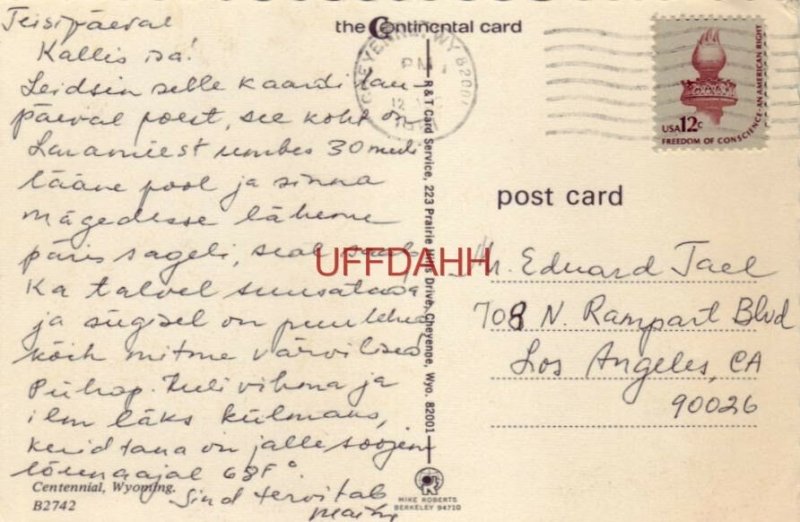 Teisipäeval
Kallis isa!
Leidsin selle kaardi lau-
päeval poest, see koht on
Laramiest umbes 30 miili
lääne pool ja sinna
mägedesse läheme
päris sageli, seal saab
Ka talvel suusatada
ja sügisel on puulehed
kõik mitme värvilised
Pühap. tuli vihma ja
ilm läks külmaks,
kuid täna on jälle soojem
lõunaajal 68F°.
Sind tervitab
Centennial, Wyoming.
B2742
the Continental card
R&T Card Service, 223 Prairie Hills Drive, Cheyenne, Wyo. 82001
MIKE ROBERTS
BERKELEY 94710
CHEYENNE, WY 82001
PM
12
USA 12c
FREEDOM OF CONSCIENCE-AN AMERICAN RIGHT
post card
UFFDAHH
Mr. Eduard Jael
708 N. Rampart Blvd
Los Angeles, CA
90026